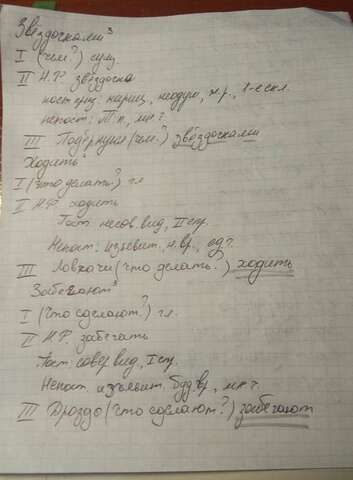 Звёздочками³
I (чем?) сущ
II Н.Ф. звёздочка
пост. приз: нариц, неодуш, ж.р., 1-е скл.
непост: Т.п., мн.ч.
III (чем?) звёздочками
Ходить³
I (что делать?) гл
II Н.Ф. ходить
Пост. несов. вид, II спр.
Непост. изъявит. н.вр., ед.ч.
III Ловкачи (что делать?) ходить
Забегают³
I (Что сделают?) гл.
II Н.Ф. забегать
Пост. совер вид, I спр.
Непост. изъявит. буд.вр, мн.ч.
III Дрозды (что сделают?) забегают